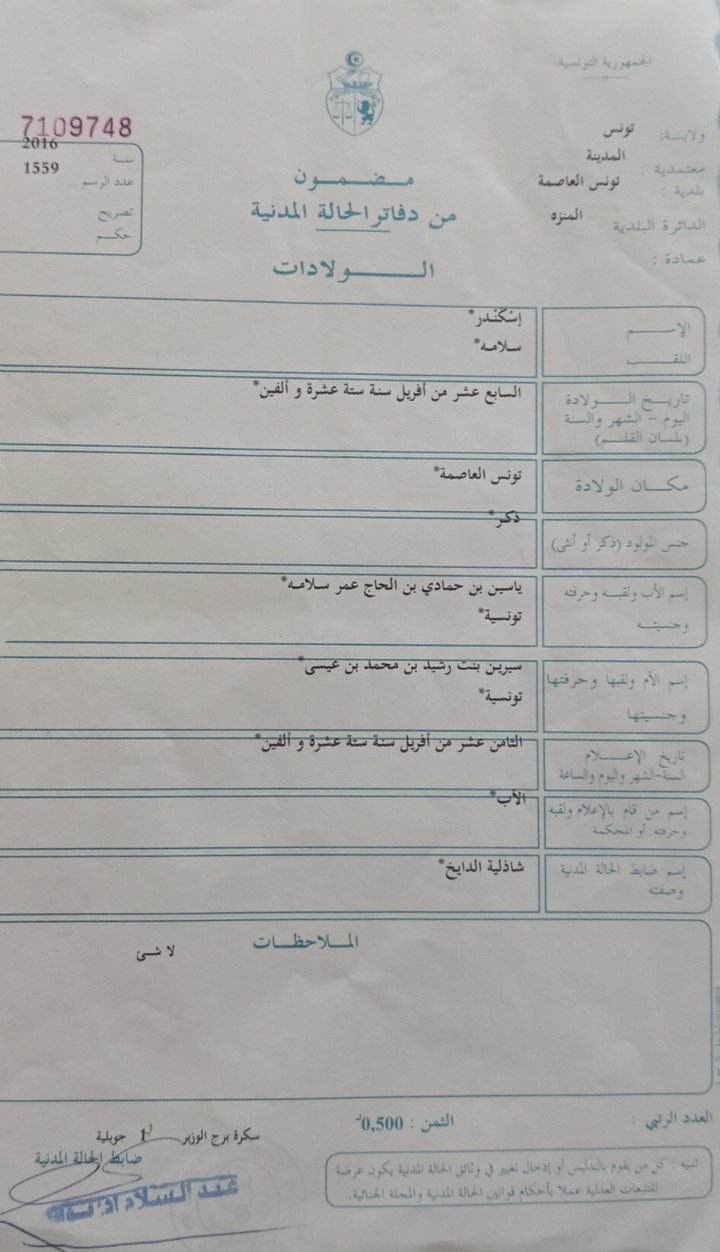 الجمهورية التونسية
ولايـــة: تونس
معتمدية : المدينة
بلدية : تونس العاصمة
الدائرة البلدية المنزه
عمادة :
7109748
سنة 2016
عدد الرسم 1559
تصريح
حكم
مضمون
من دفاتر الحالة المدنية
الـولادات
الإسم إسْكَنْدر*
اللقب سلامه*
تاريخ الولادة السابع عشر من أفريل سنة ستة عشرة و ألفين*
اليوم – الشهر والسنة
(بلسان القلم)
مكان الولادة تونس العاصمة*
جنس المولود (ذكر أو أنثى) ذكر*
إسم الأب ولقبه وحرفته ياسين بن حمادي بن الحاج عمر سلامه*
وجنسيته تونسية*
إسم الأم ولقبها وحرفتها سيرين بنت رشيد بن محمد بن عيسى*
وجنسيتها تونسية*
تاريخ الإعلام الثامن عشر من أفريل سنة ستة عشرة و ألفين*
السنة-الشهر واليوم والساعة
إسم من قام بالإعلام ولقبه الأب*
وحرفته أو المحكمة
إسم ضابط الحالة المدنية شاذلية الدايخ*
وصفته
الملاحظات
لا شئ
العدد الرتبي :
الثمن : 0,500
سكرة برج الوزير 1 جويلية
ضابط الحالة المدنية
عبد السلام
تنبيه : كل من يقوم بالتدليس أو إدخال تغيير في وثائق الحالة المدنية يكون عرضة
للتتبعات العدلية عملا بأحكام قوانين الحالة المدنية والمجلة الجنائية.